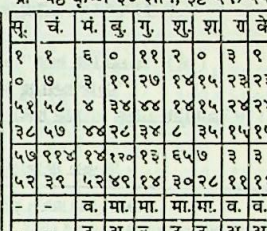 सू. चं. मं. बु. गु. शु. श. रा के
१ १ ६ ० ११ २ ० ३ ९
० ७ ३ १९ २७ १४ १५ २३ २३
५१ ५८ ४ ३४ ४४ १४ १५ २४ २४
३८ ५७ ४४ २८ ३४ ८ ३५ १५ १५
५७ ९१४ १४ १२० १३ ६५ ७ ३ ३
५२ ३९ ५२ ४९ १४ ३० २८ ११ ११
- - व. मा. मा. मा. मा. व. व.